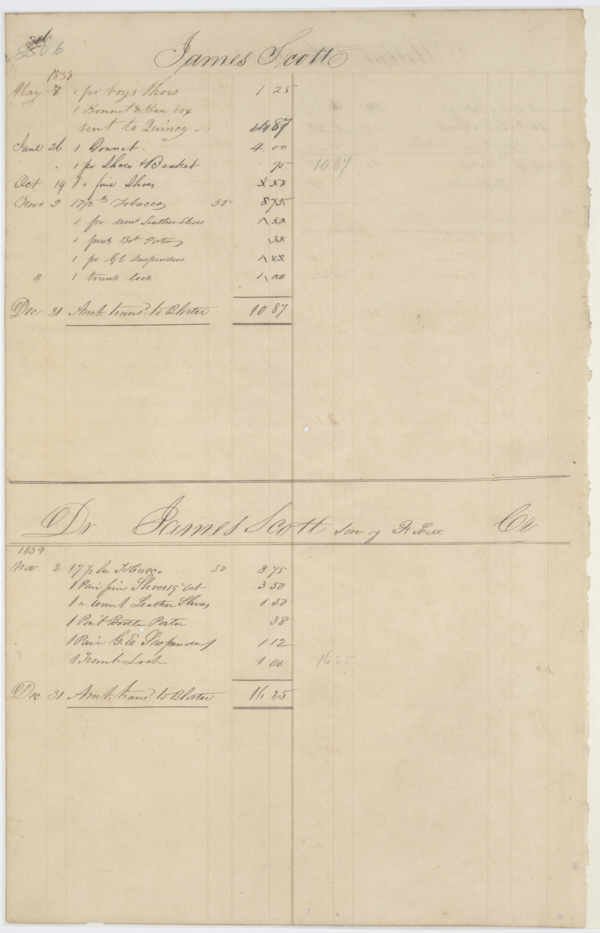 6
James Scott
1839
May 8 1 pr boys Shoes 1 25
1 Bonnet & Ban box
sent to Quincy 4 87
June 26 1 Bonnet. 4.00
" 1 pr Shoes & Basket 75 10 87
Oct 19 1 " fine Shoes
Nov 2 17 1/2 lb Tobacco 50 8 75
1 pr Leather Shoes
1 Bot Porter 38
1 pr G E Suspenders
8 1 trunk lock 1 00
Dec 31 Amt. trans.d to Blotter 10 87
Dr James Scott son of Cr
1839
Nov 2 17 1/2 lb Tobacco 50 8 75
1 Pair fine Shoes 19 Oct 3 50
1 " Leather Shoes 1 50
1 Bottle Porter 38
1 Pair G. E Suspenders 1 12
1 Trunk Lock 1 00 16 25
Dec 31 Amt. trans.d to Blotter 16 25